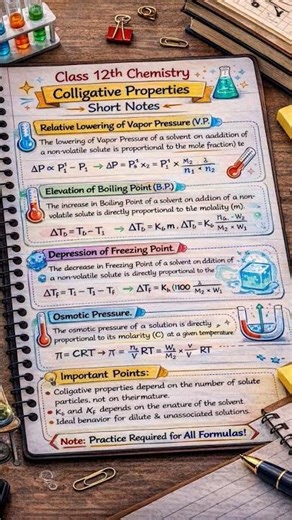 Class 12th Chemistry
Colligative Properties
Short Notes
Relative Lowering of Vapor Pressure (V.P.)
The lowering of Vapor Pressure of a solvent on aaddition of
a non-volatile solute is proportional to the mole fraction) te
ΔP ∝ P₁° − P₁ → ΔP = P₁° x₂ = P₁° ×
Elevation of Boiling Point (B.P.)
The increase in Boiling Point of a solvent on addition of a non-
volatile solute is directly proportional to tile molality (m).
ΔT_b = T_b − T₁ → ΔT_b = K_b m , ΔT_b = K_b
Depression of Freezing Point.
The decrease in Freezing Point of a solvent on ddition of
a non-volatile is directly proportional to the
ΔT_F = T₁ − T₂ − T_F → ΔT_F = K_b (1100
Osmotic Pressure.
The osmotic pressure of a solution is directly
proportional to its molarity (C) at a given temperature
π = CRT → π = n₂/V RT = W₂/M₂ × RT
Important Points:
Colligative properties depend on the number of solute
particles, not on theirmature.
K_b and K_F depends on the enature of the solvent.
Ideal behavior for dilute & unassociated solutions.
Note: Practice Required for All Formulas!